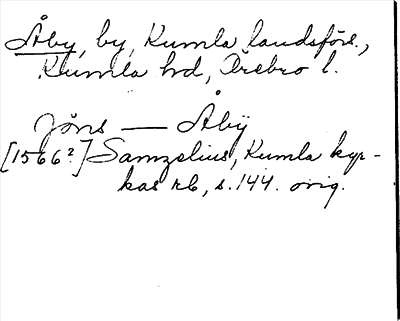 Åby, by, Kumla landsförs.,
Kumla hd, Örebro l.
Jöns — Åby
[1566?] Samzelius, Kumla kyr-
kas rb, s. 144. orig.